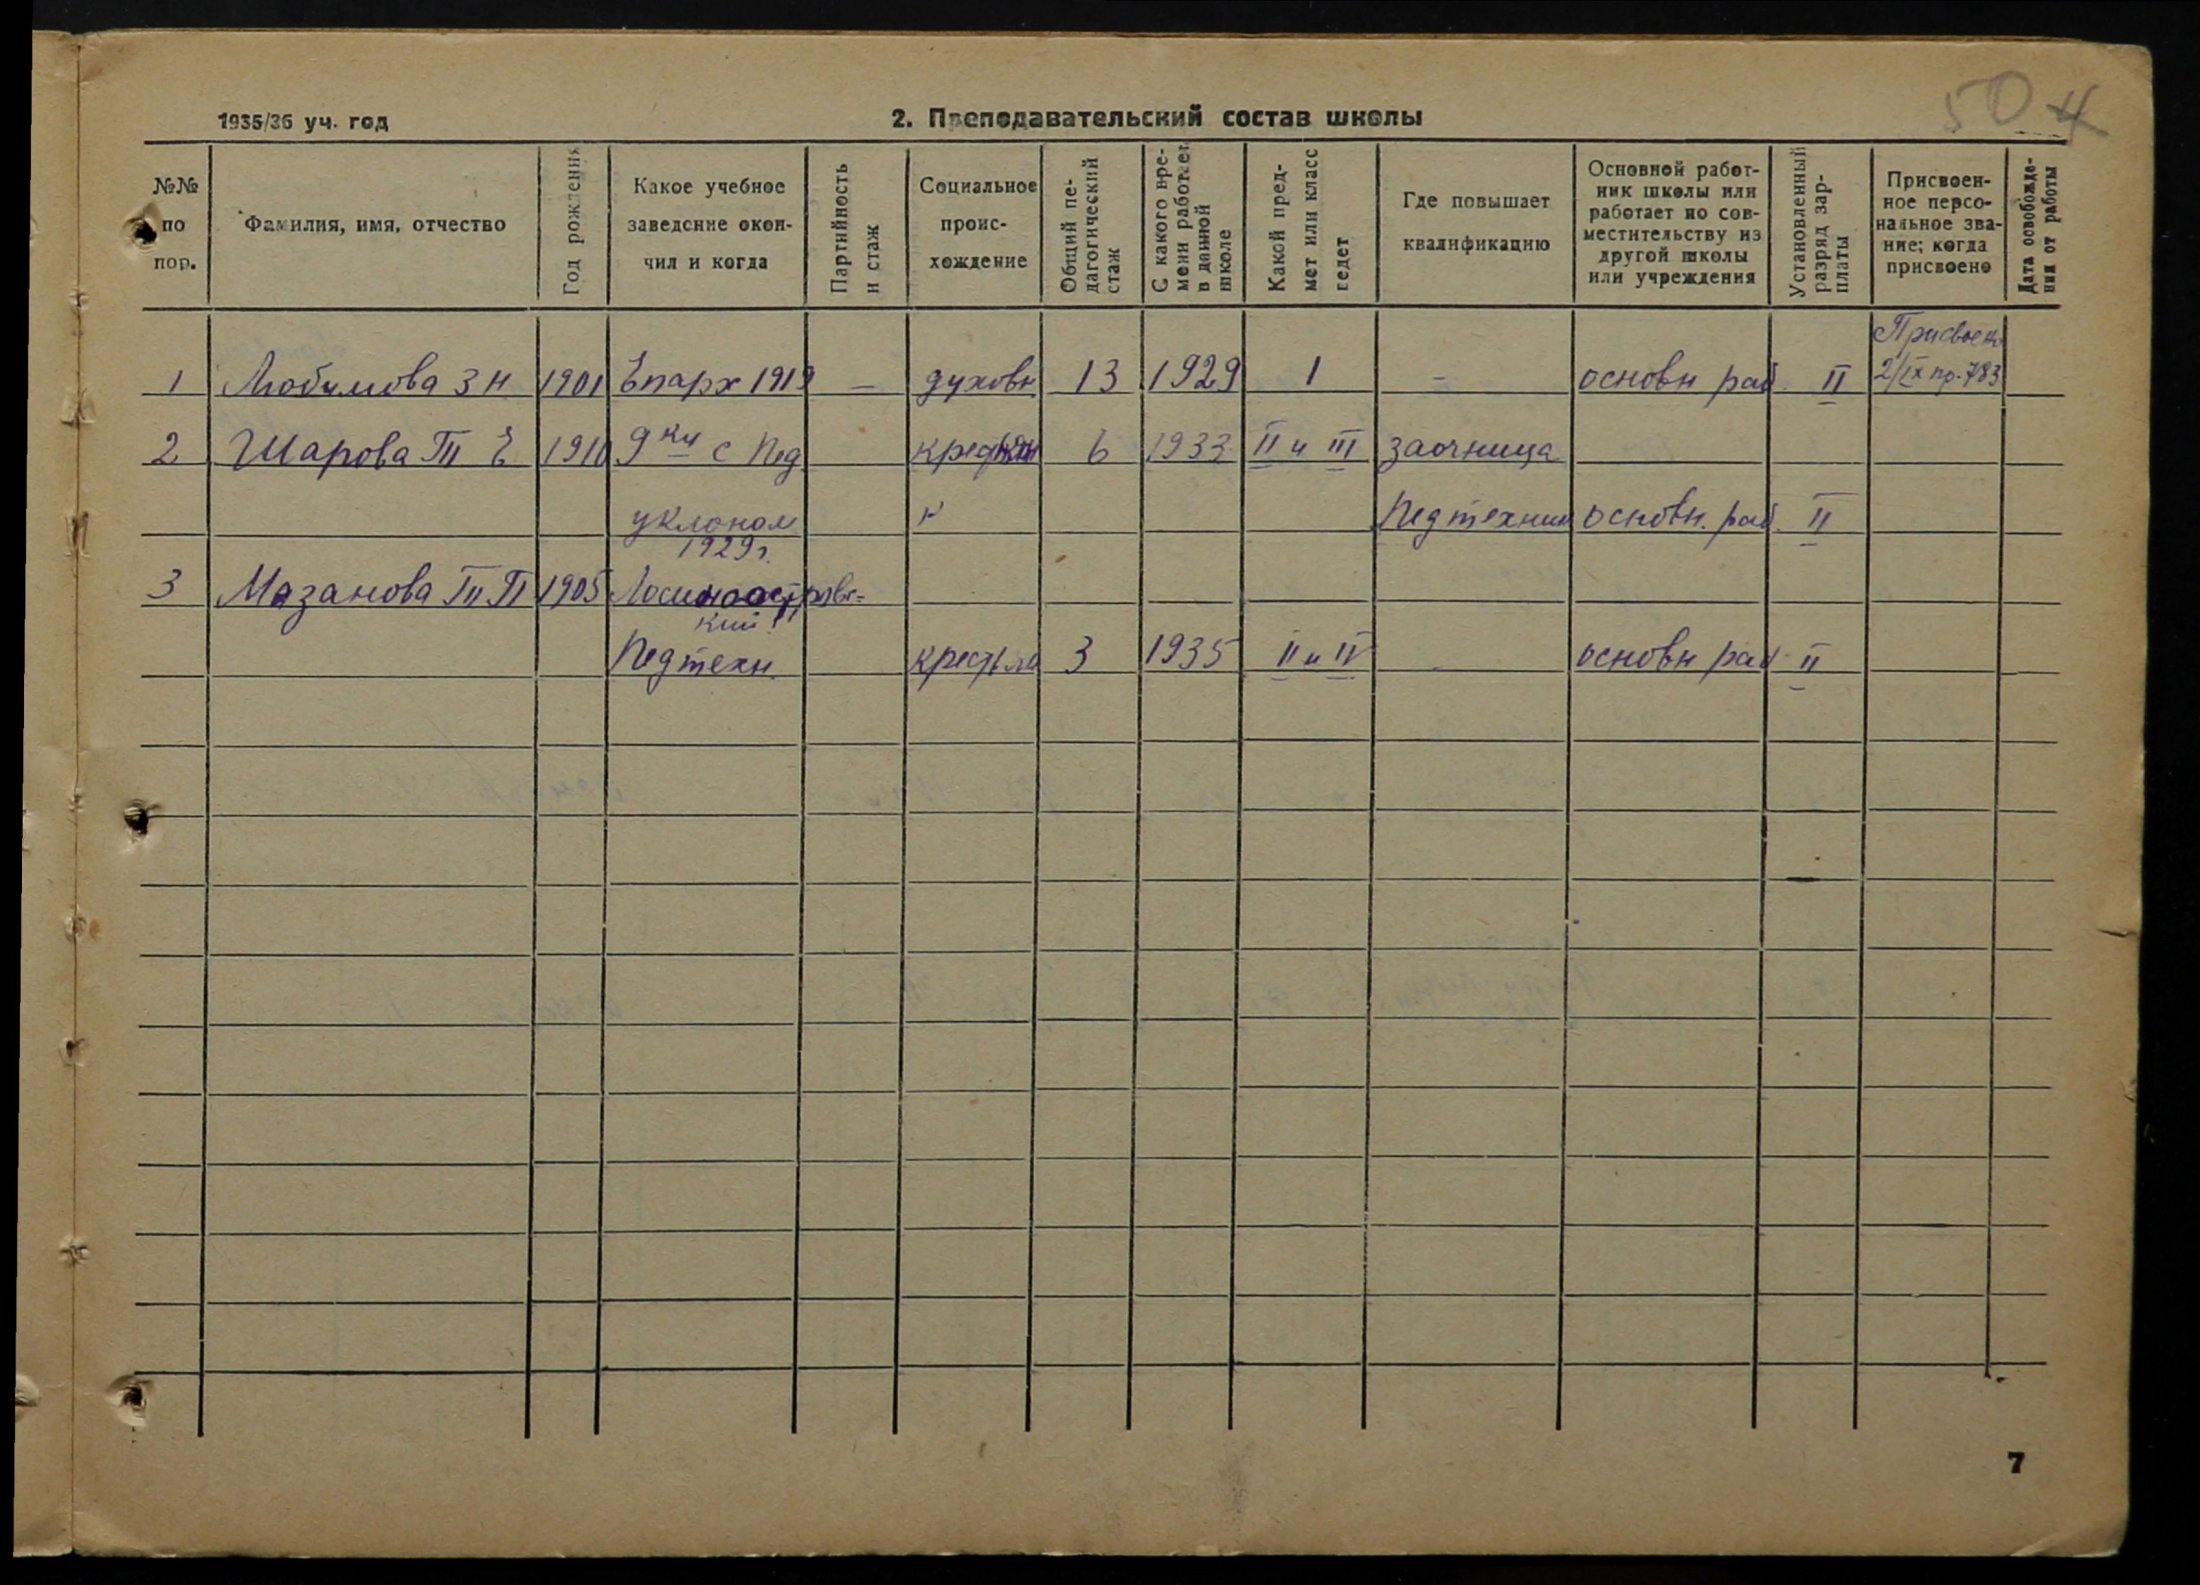 50 4
1935/36 уч. год
2. Преподавательский состав школы
№№ по пор.
Фамилия, имя, отчество
Год рождения
Какое учебное заведение окончил и когда
Партийность и стаж
Социальное проис-хождение
Общий пе-дагогический стаж
С какого вре-мени работает в данной школе
Какой пред-мет или класс ведет
Где повышает квалификацию
Основной работ-ник школы или работает по сов-местительству из другой школы или учреждения
Установленный разряд зар-платы
Присвоен-ное персо-нальное зва-ние; когда присвоено
Дата освобожде-ния от работы
1 Любимова З Н 1901 Епарх 1919 — духовн 13 1929 1 – основн раб. II Присвоено 2/IX пр. 783
2 Шарова Т Е 1910 9 ки с пед крестьян 6 1933 II и III заочница
уклоном н Педтехник основн. раб. II
1929 г.
3 Мазанова Т П 1905 Лосиноостровс=
кий
Педтехн. крестьян 3 1935 II и IV – основн раб II
7